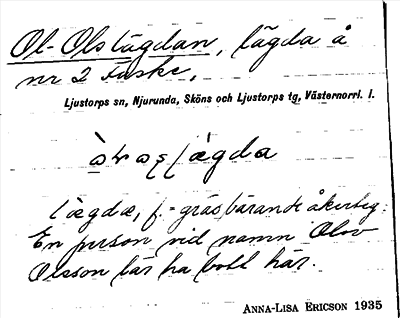 Ol-Olstägdan, lägda å
nr 2 Fuske.
Ljustorps sn, Njurunda, Sköns och Ljustorps tg, Västernorrl. l.
lägda, f. = gräsbärande åkerteg.
En person vid namn Olov
Olsson lär ha bott här.
ANNA-LISA ERICSON 1935